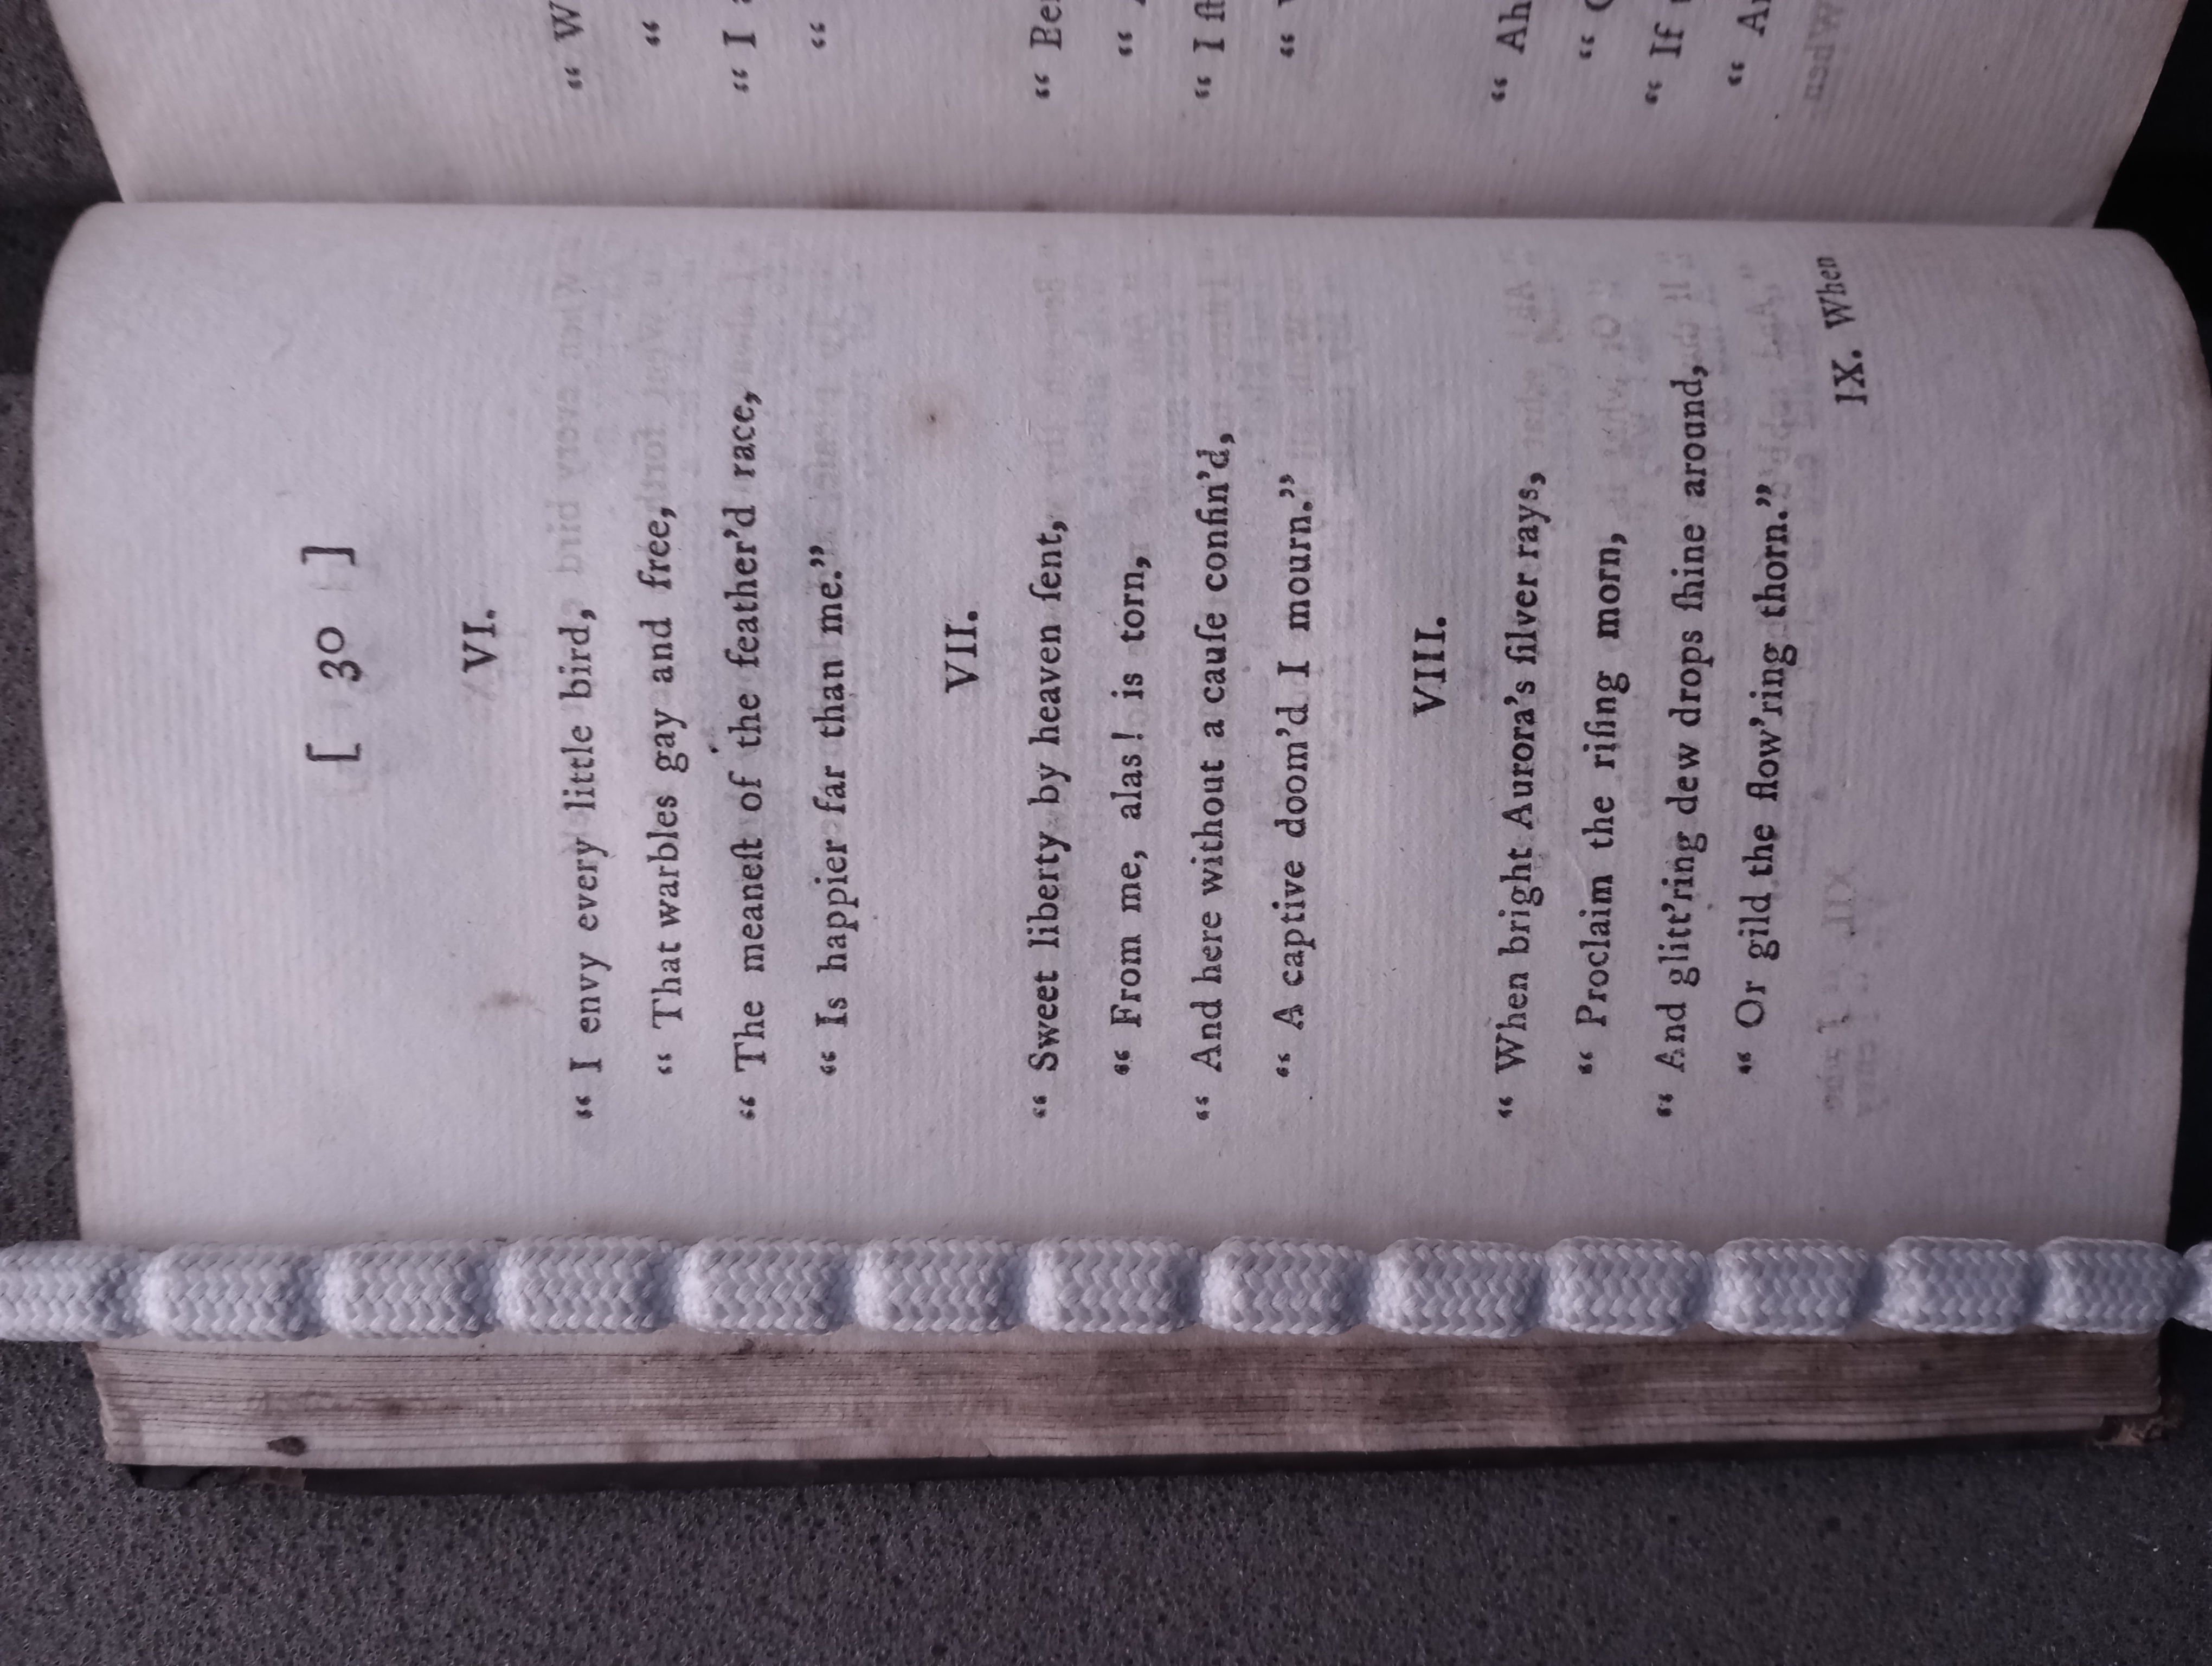 [ 30 ]
VI.
“ I envy every little bird,
“ That warbles gay and free,
“ The meaneſt of the feather'd race,
“ Is happier far than me.”
VII.
“ Sweet liberty by heaven ſent,
“ From me, alas! is torn,
“ And here without a cauſe confin'd,
“ A captive doom'd I mourn.”
VIII.
“ When bright Aurora's ſilver rays,
“ Proclaim the riſing morn,
“ And glitt'ring dew drops ſhine around,
“ Or gild the flow'ring thorn.”
IX. When
“ W
“
“ I
“
“ Be
“
“ I ſt
“
“ Ah
“
“ If
“ A